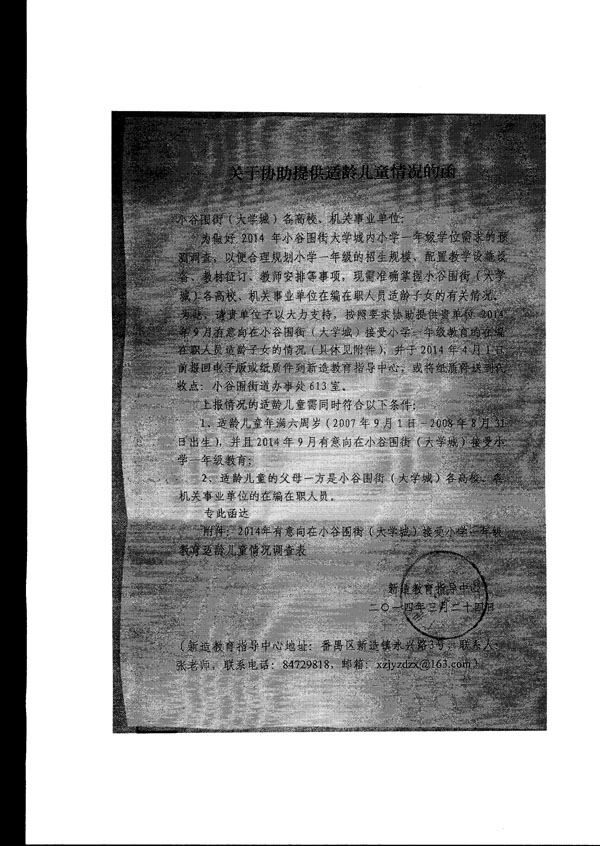 关于协助提供适龄儿童情况的函
小谷围街（大学城）各高校、机关事业单位：
为做好 2014 年小谷围街大学城内小学一年级学位需求的预
测调查，以便合理规划小学一年级的招生规模、配置教学设施设
备、教材征订、教师安排等事项，现需准确掌握小谷围街（大学
城）各高校、机关事业单位在编在职人员适龄子女的有关情况。
为此，请贵单位予以大力支持，按照要求协助提供贵单位 2014
年 9 月有意向在小谷围街（大学城）接受小学一年级教育的在编
在职人员适龄子女的情况（具体见附件），并于 2014 年 4 月 1 日
前报回电子版或纸质件到新造教育指导中心，或将纸质件送到代
收点：小谷围街道办事处 613 室。
上报情况的适龄儿童需同时符合以下条件：
1、适龄儿童年满六周岁（2007 年 9 月 1 日－2008 年 8 月 31
日出生），并且 2014 年 9 月有意向在小谷围街（大学城）接受小
学一年级教育；
2、适龄儿童的父母一方是小谷围街（大学城）各高校、
机关事业单位的在编在职人员。
专此函达
附件：2014年有意向在小谷围街（大学城）接受小学一年级
教育适龄儿童情况调查表
新造教育指导中心
二〇一四年三月二十四日
（新造教育指导中心地址：番禺区新造镇永兴路3号，联系人：
张老师，联系电话：84729818，邮箱：xzjyzdzx@163.com）